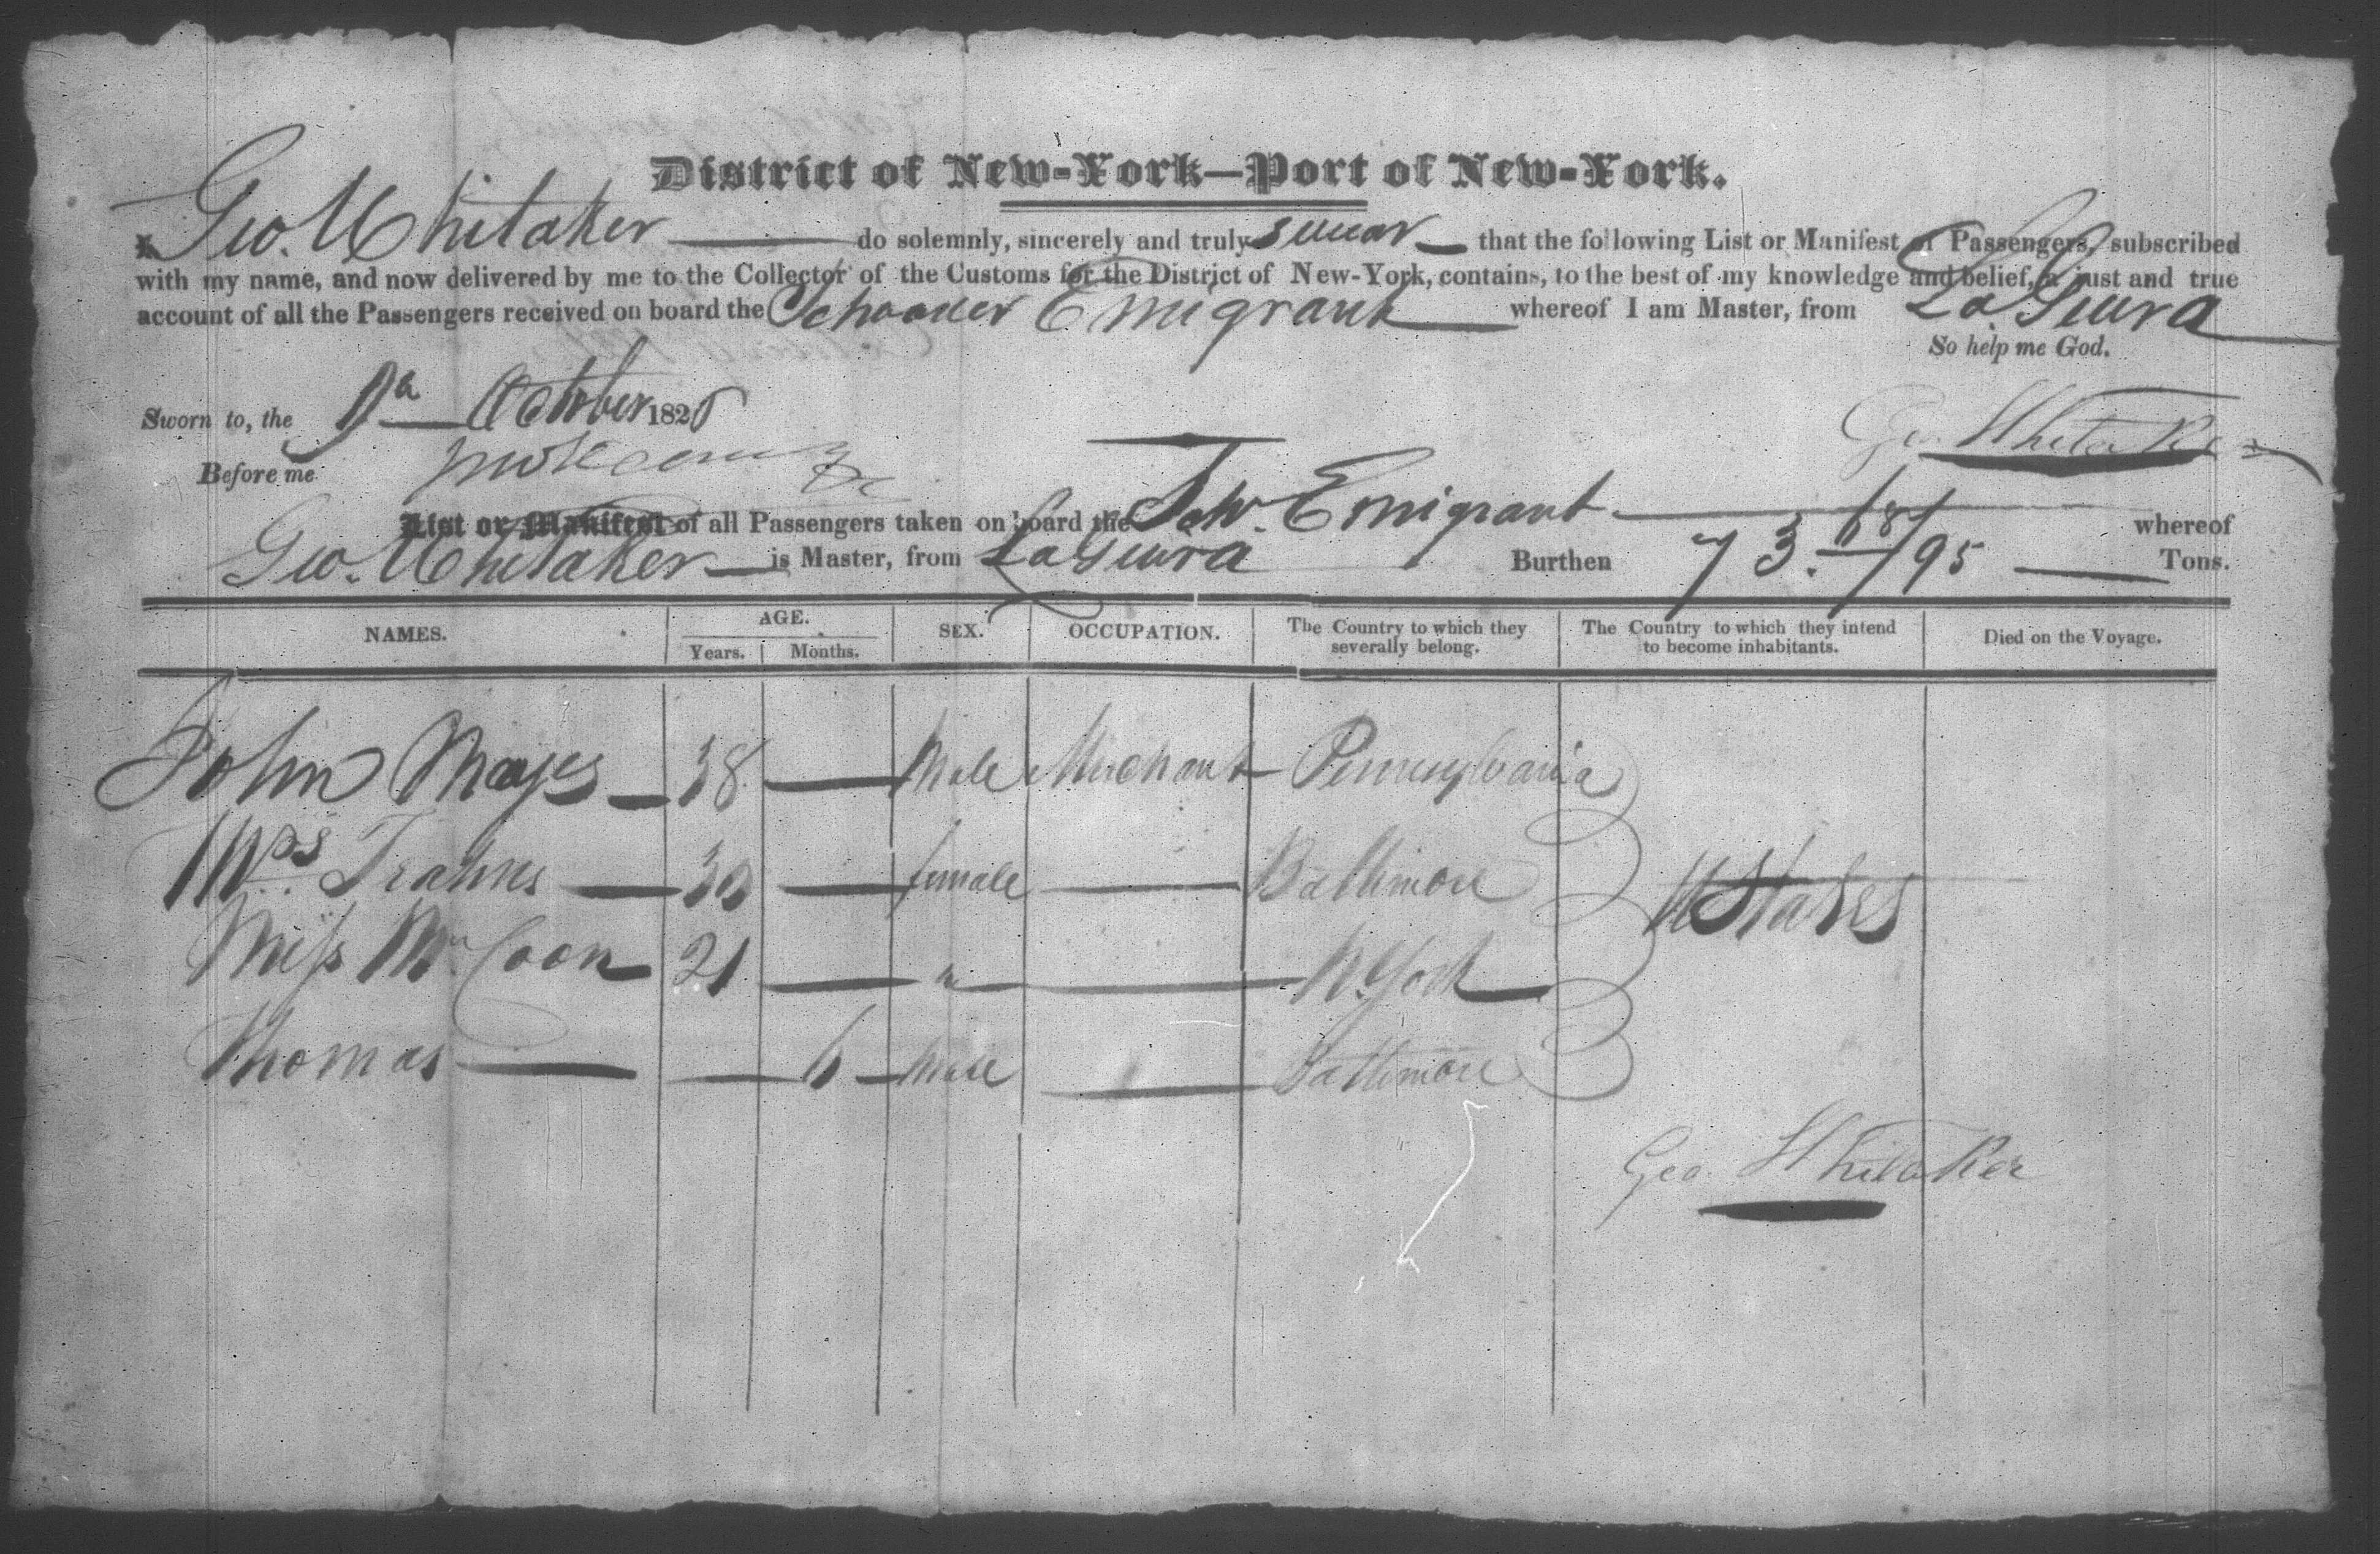 District of New-York—Port of New-York.
I, Geo. Whitaker do solemnly, sincerely and truly swear that the following List or Manifest of Passengers, subscribed
with my name, and now delivered by me to the Collector of the Customs for the District of New-York, contains, to the best of my knowledge and belief, a just and true
account of all the Passengers received on board the Schooner Emigrant whereof I am Master, from La Guira
So help me God.
Sworn to, the October 182
Geo Whitaker
Before me
List or Manifest of all Passengers taken on board the Schr. Emigrant whereof
Geo. Whitaker is Master, from La Guira Burthen 73. 68/95 Tons.
NAMES. AGE. Years. Months. SEX. OCCUPATION. The Country to which they severally belong. The Country to which they intend to become inhabitants. Died on the Voyage.
John Mayes 38 Male Merchant Pennsylvania
Mrs 30 female Baltimore U States
Miss Mc Coon 21 " N. York
Thomas 6 Male Baltimore
Geo Whitaker